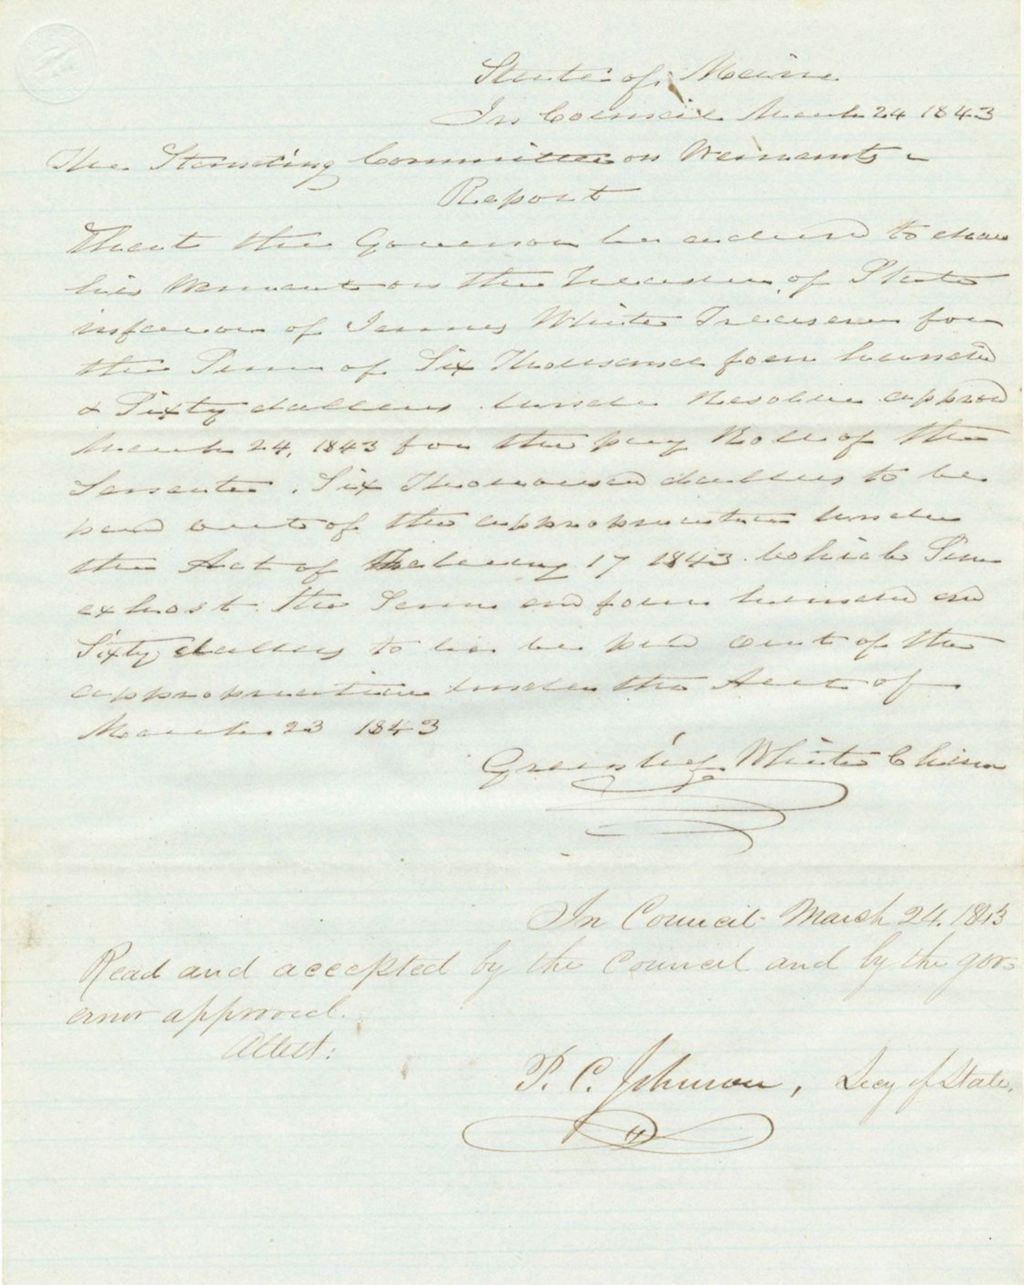 State of Maine
In Council March 24 1843
The Standing Committee on Warrants
Report
That the Governor be advised to draw
his Warrant on the Treasurer of State
in favour of James White Treasurer for
the Sum of Six Thousand four hundred
& Sixty dollars under Resolve approved
March 24, 1843 for the pay Roll of the
Senate. Six Thousand dollars to be
paid out of the appropriation under
the Act of February 17 1843 which Sum
exhost the Same and four hundred and
Sixty dollars to be be paid out of the
appropriation under the Act of
March 23 1843
Greenlief White Chairm
In Council March 24. 1843
Read and accepted by the Council and by the gov-
ernor approved.
Attest:
P. C. Johnson, Secy of State.